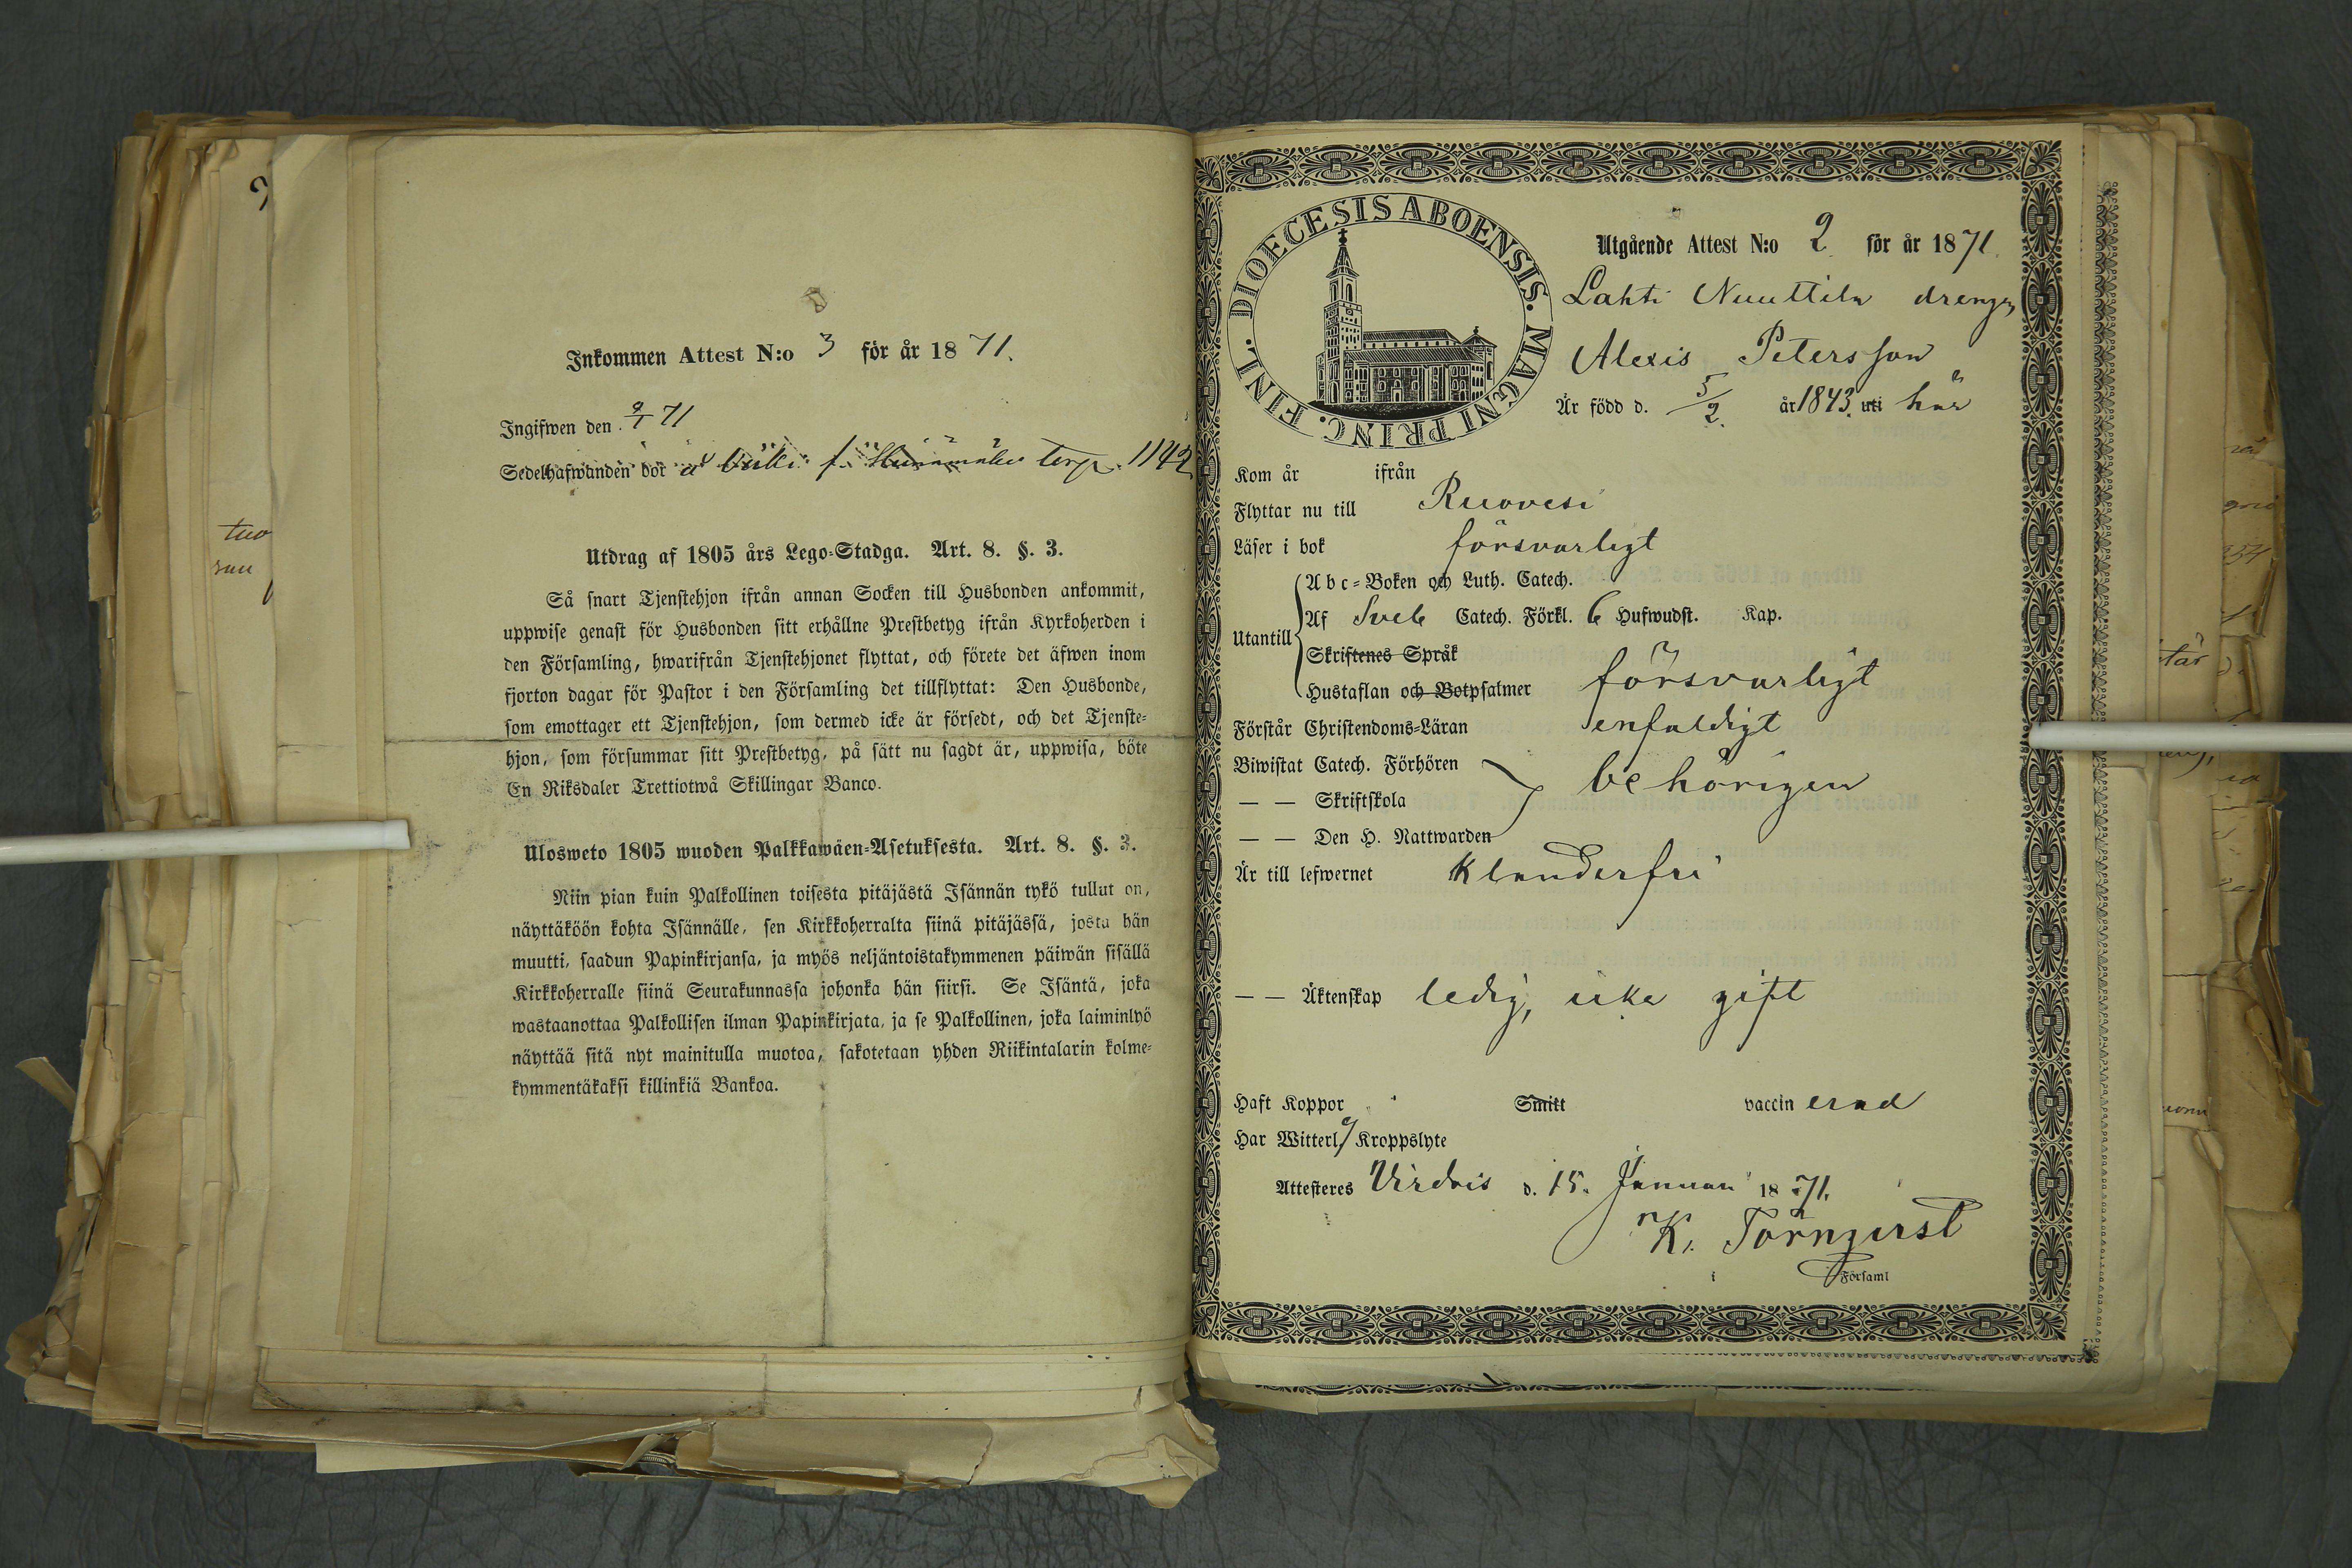 Inkommen Attest N:o 3 för år 1871.
Ingifwen den 9/1 71
Sedelhafwanden bor å torp. 1142
Utdrag af 1805 års Lego-Stadga. Art. 8. §. 3.
Så snart Tjenstehjon ifrån annan Socken till Husbonden ankommit,
uppwise genast för Husbonden sitt erhållne Prestbetyg ifrån Kyrkoherden i
den Församling, hwarifrån Tjenstehjonet flyttat, och förete det äfwen inom
fjorton dagar för Pastor i den Församling det tillflyttat: Den Husbonde,
som emottager ett Tjenstehjon, som dermed icke är försedt, och det Tjenste-
hjon, som försummar sitt Prestbetyg, på sätt nu sagdt är, uppwisa, böte
En Riksdaler Trettiotwå Skillingar Banco.
Ulosweto 1805 wuoden Palkkawäen-Asetuksesta. Art. 8. §. 3.
Niin pian kuin Palkollinen toisesta pitäjästä Isännän tykö tullut on,
näyttäköön kohta Isännälle, sen Kirkkoherralta siinä pitäjässä, josta hän
muutti, saadun Papinkirjansa, ja myös neljäntoistakymmenen päiwän sisällä
Kirkkoherralle siinä Seurakunnassa johonka hän siirsi. Se Isäntä, joka
wastaanottaa Palkollisen ilman Papinkirjata, ja se Palkollinen, joka laiminlyö
näyttää sitä nyt mainitulla muotoa, sakotetaan yhden Riikintalarin kolme-
kymmentäkaksi killinkiä Bankoa.
DIOECESIS ABOENSIS. MAGNI PRINC. FINL.
Utgående Attest N:o 2 för år 1871.
Lahti Nuuttila drengen
Alexis Petersson
Är född d. 5/2 år 1843. uti här
Kom år ifrån
Flyttar nu till Ruovesi
Läser i bok försvarligt
Utantill
Abc-Boken och Luth. Catech.
Af Sveb Catech. Förkl. 6 Hufwudst. Kap.
Skriftenes Språk
Hustaflan och Botpsalmer försvarligt
Förstår Christendoms-Läran enfaldigt
Biwistat Catech. Förhören
— — Skriftskola behörigen
— — Den H. Nattwarden
Är till lefwernet klanderfri
— — Äktenskap ledig, icke gift
Haft Koppor Smitt vaccinerad
Har Witterl. Kroppslyte
Attesteres Virdois d. 15. Januari 1871.
K. Törnqvist
i Församl